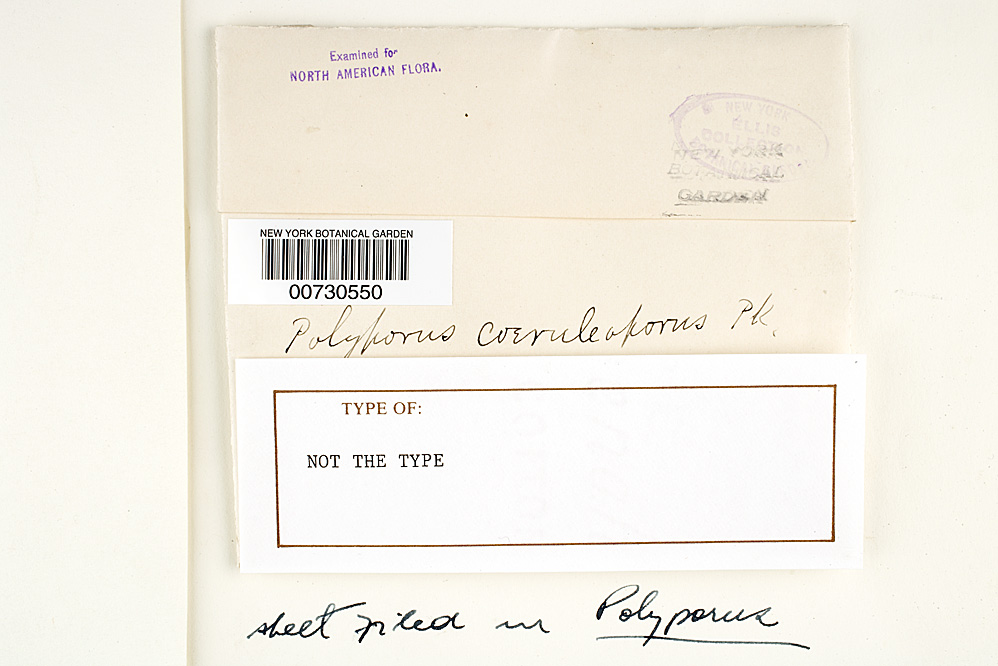 Examined for
NORTH AMERICAN FLORA.
NEW YORK
ELLIS
COLLECTION
BOTANICAL
NEW YORK
BOTANICAL
GARDEN
NEW YORK BOTANICAL GARDEN
00730550
Polyporus coeruleoporus Pk.
TYPE OF:
NOT THE TYPE
sheet filed in Polyporus